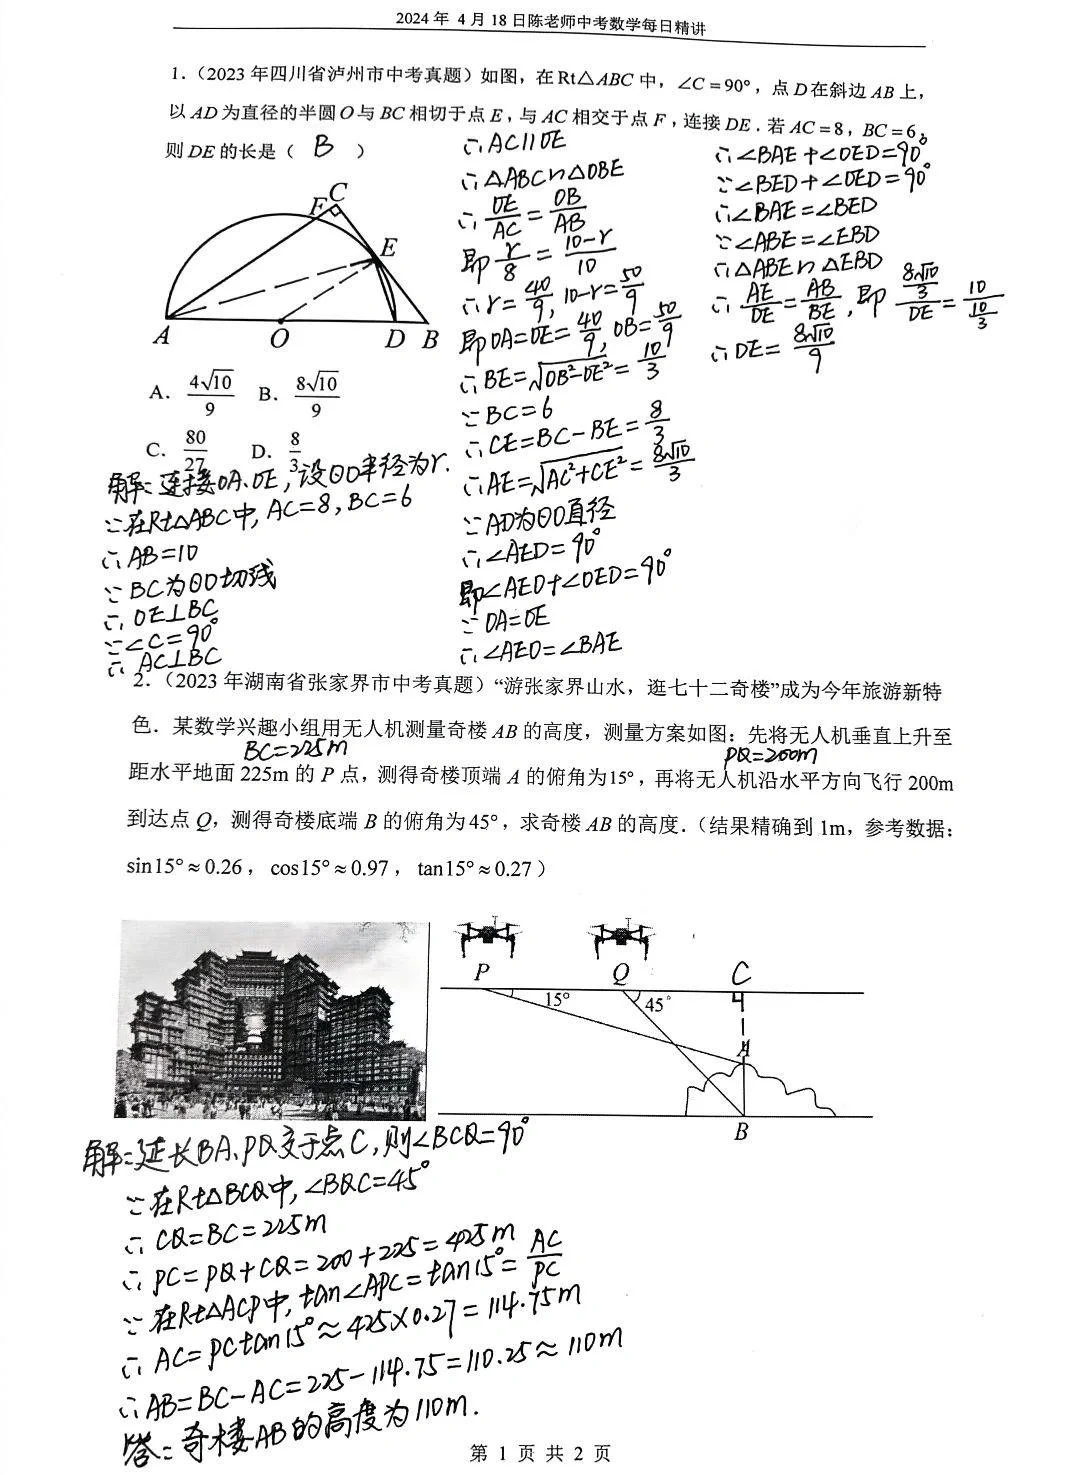 2024 年 4 月 18 日陈老师中考数学每日精讲
1.（2023 年四川省泸州市中考真题）如图，在 Rt△ABC 中，∠C = 90°，点 D 在斜边 AB 上，
以 AD 为直径的半圆 O 与 BC 相切于点 E，与 AC 相交于点 F，连接 DE．若 AC = 8，BC = 6，
则 DE 的长是（ B ）
C
F
E
A
O
D
B
A. 4√10/9 B. 8√10/9
C. 80/27 D. 8/3
解：连接OA、OE，设⊙O半径为r.
∵在Rt△ABC中，AC=8，BC=6
∴AB=10
∵BC为⊙O切线
∴OE⊥BC
∵∠C=90°
∴AC⊥BC
∴AC∥OE
∴△ABC∽△OBE
∴OE/AC=OB/AB
即 r/8=(10-r)/10
∴r=40/9，10-r=50/9
即OA=OE=40/9，OB=50/9
∴BE=√(OB²-OE²)=10/3
∵BC=6
∴CE=BC-BE=8/3
∴AE=√(AC²+CE²)=8√10/3
∵AD为⊙O直径
∴∠AED=90°
即∠AEO+∠OED=90°
∵OA=OE
∴∠AEO=∠BAE
∴∠BAE+∠OED=90°
∵∠BED+∠OED=90°
∴∠BAE=∠BED
∵∠ABE=∠EBD
∴△ABE∽△EBD
∴AE/DE=AB/BE，即 (8√10/3)/DE=10/(10/3)
∴DE=8√10/9
2.（2023 年湖南省张家界市中考真题）“游张家界山水，逛七十二奇楼”成为今年旅游新特
色．某数学兴趣小组用无人机测量奇楼 AB 的高度，测量方案如图：先将无人机垂直上升至
BC=225m PQ=200m
距水平地面 225m 的 P 点，测得奇楼顶端 A 的俯角为15°，再将无人机沿水平方向飞行 200m
到达点 Q，测得奇楼底端 B 的俯角为45°，求奇楼 AB 的高度．（结果精确到 1m，参考数据：
sin15° ≈ 0.26，cos15° ≈ 0.97，tan15° ≈ 0.27）
P Q C
15° 45°
A
B
解：延长BA、PQ交于点C，则∠BCQ=90°
∵在Rt△BCQ中，∠BQC=45°
∴CQ=BC=225m
∴PC=PQ+CQ=200+225=425m
∵在Rt△ACP中，tan∠APC=tan15°=AC/PC
∴AC=PCtan15°≈425×0.27=114.75m
∴AB=BC-AC=225-114.75=110.25≈110m
答：奇楼AB的高度为110m.
第 1 页 共 2 页